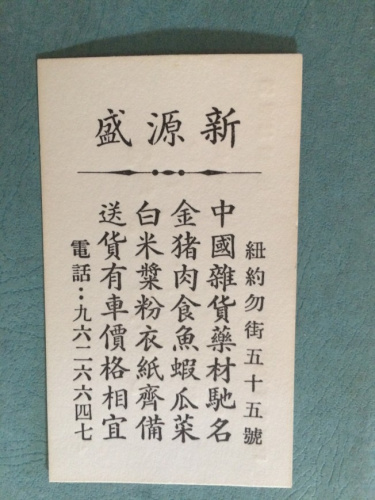 新源盛
紐約勿街五十五號
中國雜貨藥材馳名
金猪肉食魚蝦瓜菜
白米漿粉衣紙齊備
送貨有車價格相宜
電話：九六二六六四七